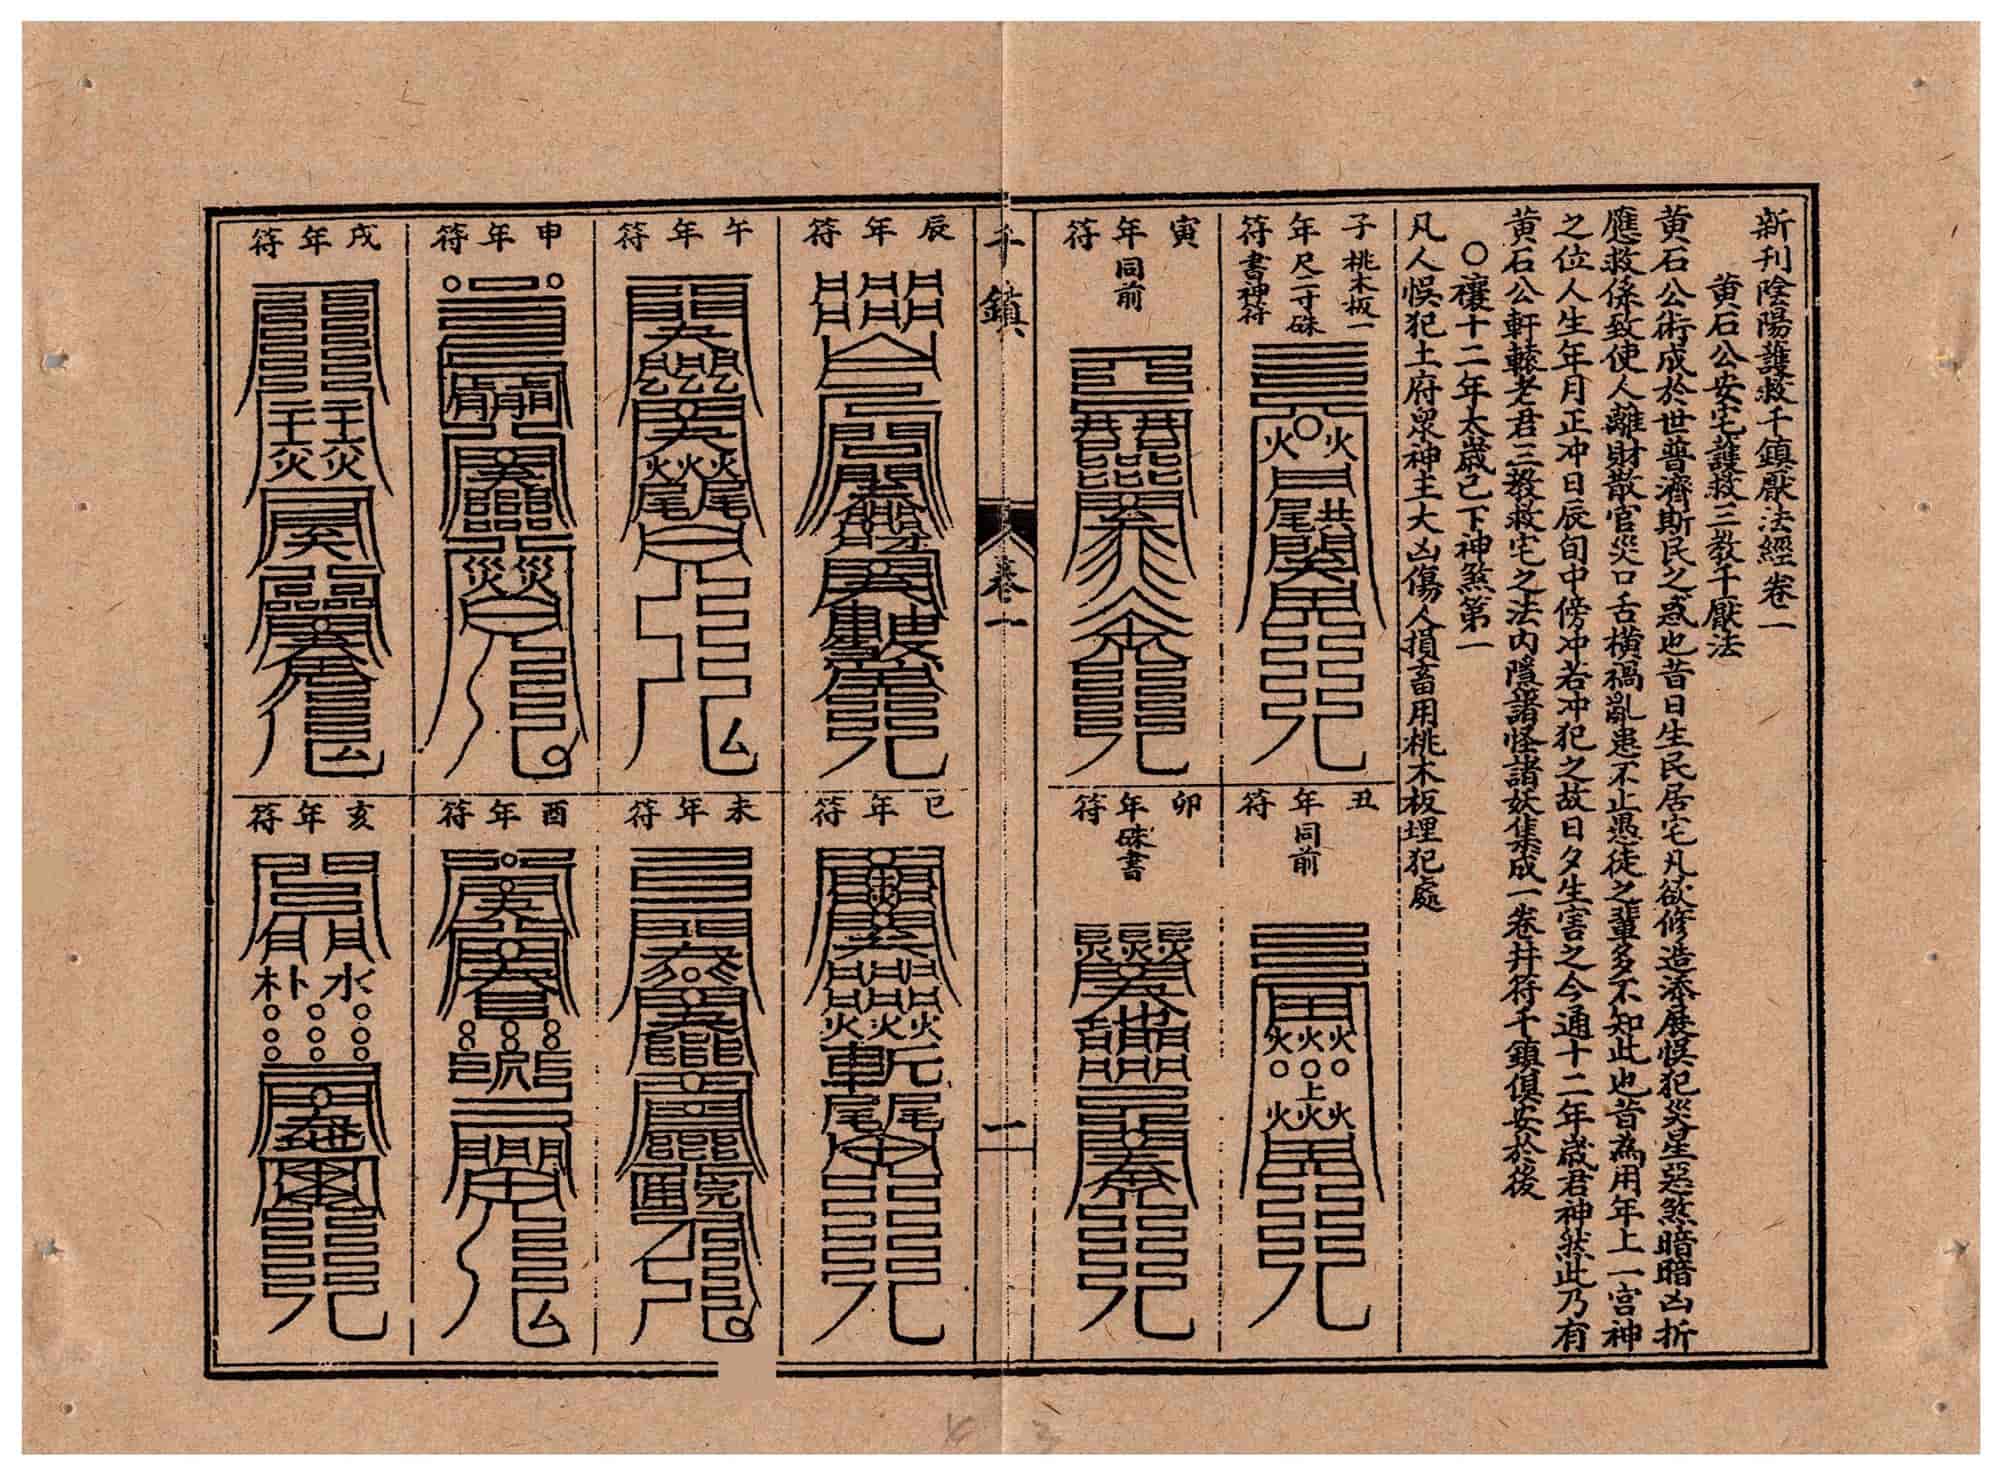 新刊陰陽護救千鎮厭法經卷一
黃石公安宅護救三教千厭法
黃石公術成於世普濟斯民之惑也昔日生民居宅凡欲修造添展悞犯災星惡煞暗暗凶折
應救係致使人離財散官災口舌橫禍亂患不止愚徒之輩多不知此也昔為用年上一宮神
之位人生年月正冲日辰旬中傍冲若冲犯之故日夕生害之今通十二年歲君神煞此乃有
黃石公軒轅老君三教救宅之法內隱諸怪諸妖集成一卷并符千鎮俱安於後
○禳十二年太歲己下神煞第一
凡人悞犯土府衆神主大凶傷人損畜用桃木板埋犯處
子年符 桃木板一尺二寸硃書神符
丑年符 同前
寅年符 同前
卯年符 硃書
千鎮 卷一 一
辰年符
巳年符
午年符
未年符
申年符
酉年符
戌年符
亥年符